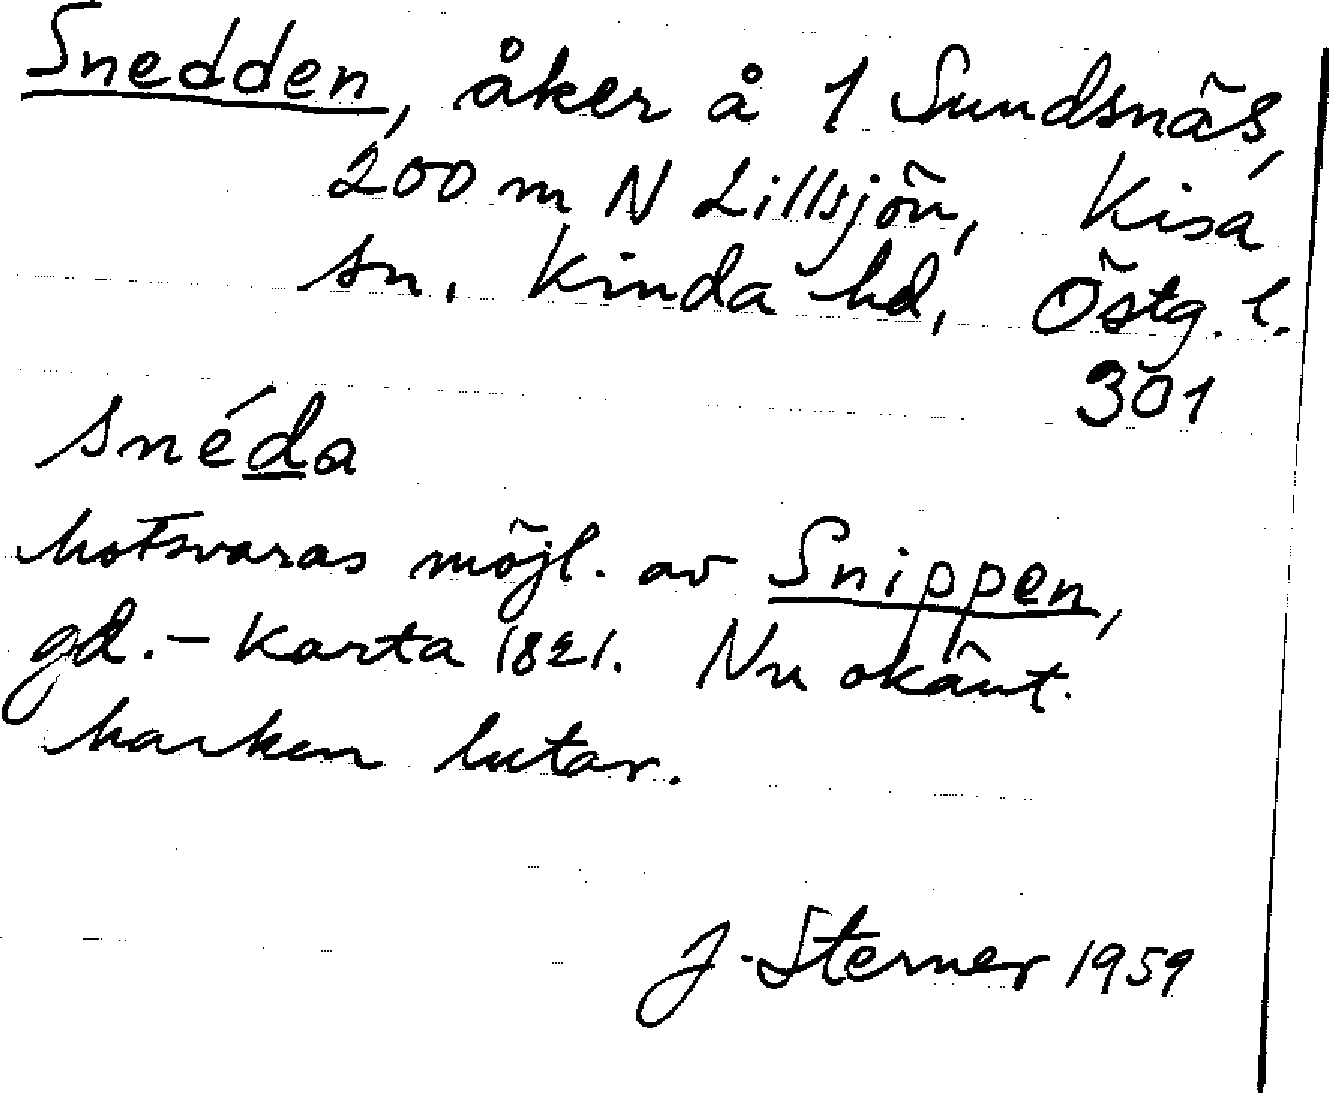 Snedden, åker å 1 Sundsnäs,
200 m N Lillsjön, Kisa
sn. Kinda hd, Östg. l.
301
snéda
Motsvaras möjl. av Snippen,
gd. - Karta 1821. Nu okänt.
Marken lutar.
J. Sterner 1959